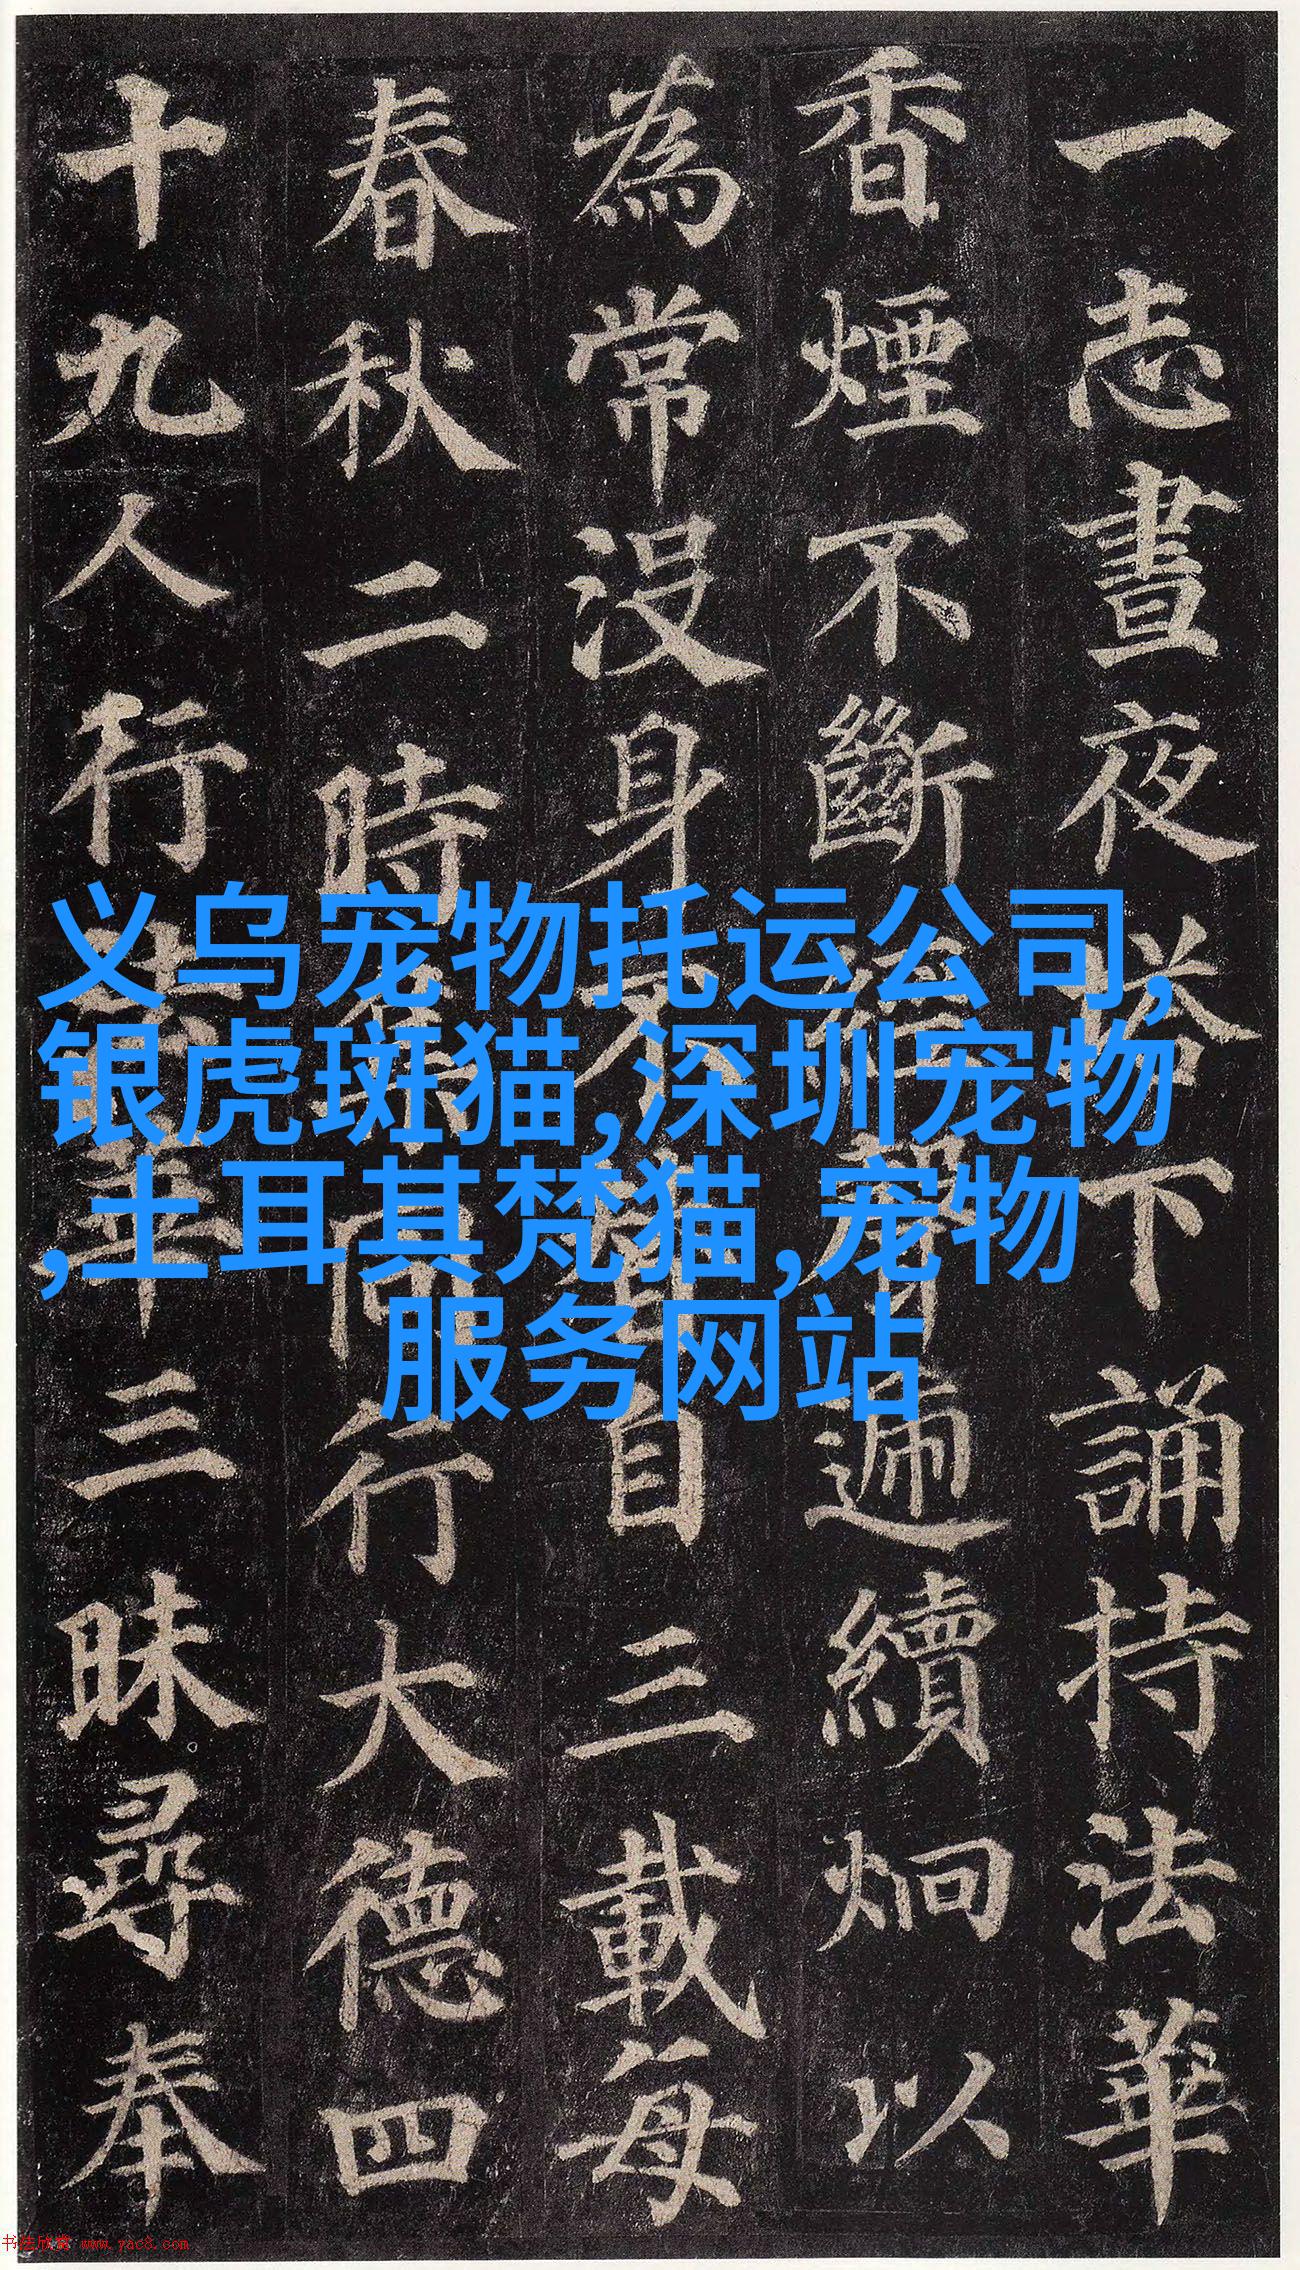 一志晝夜塔下誦持法華
香煙不斷經聲遍續炯以
為常沒身不替自三載每
春秋二時集同行大德四
十九人行法華三昧尋奉
义乌宠物托运公司,
银虎斑猫,深圳宠物
,土耳其梵猫,宠物
服务网站
书法欣赏 www.yac8.com